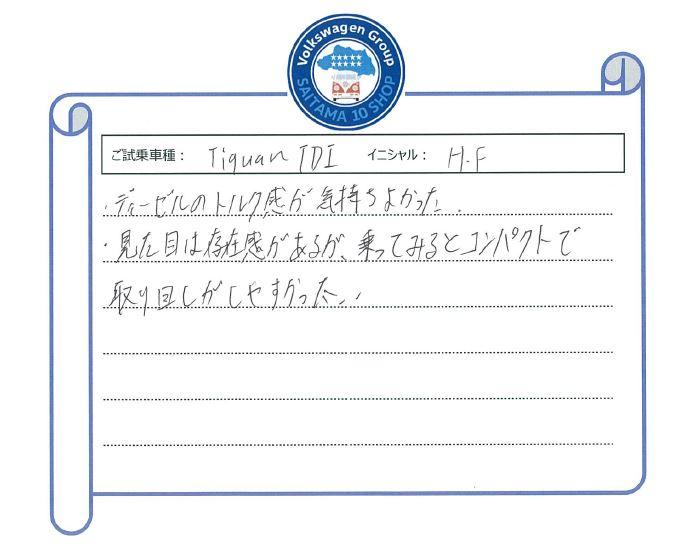 Volkswagen Group
SAITAMA 10 SHOP
ご試乗車種： Tiguan TDI イニシャル： H.F
・ディーゼルのトルク感が気持ちよかった.
・見た目は存在感があるが、乗ってみるとコンパクトで
取り回しがしやすかった..